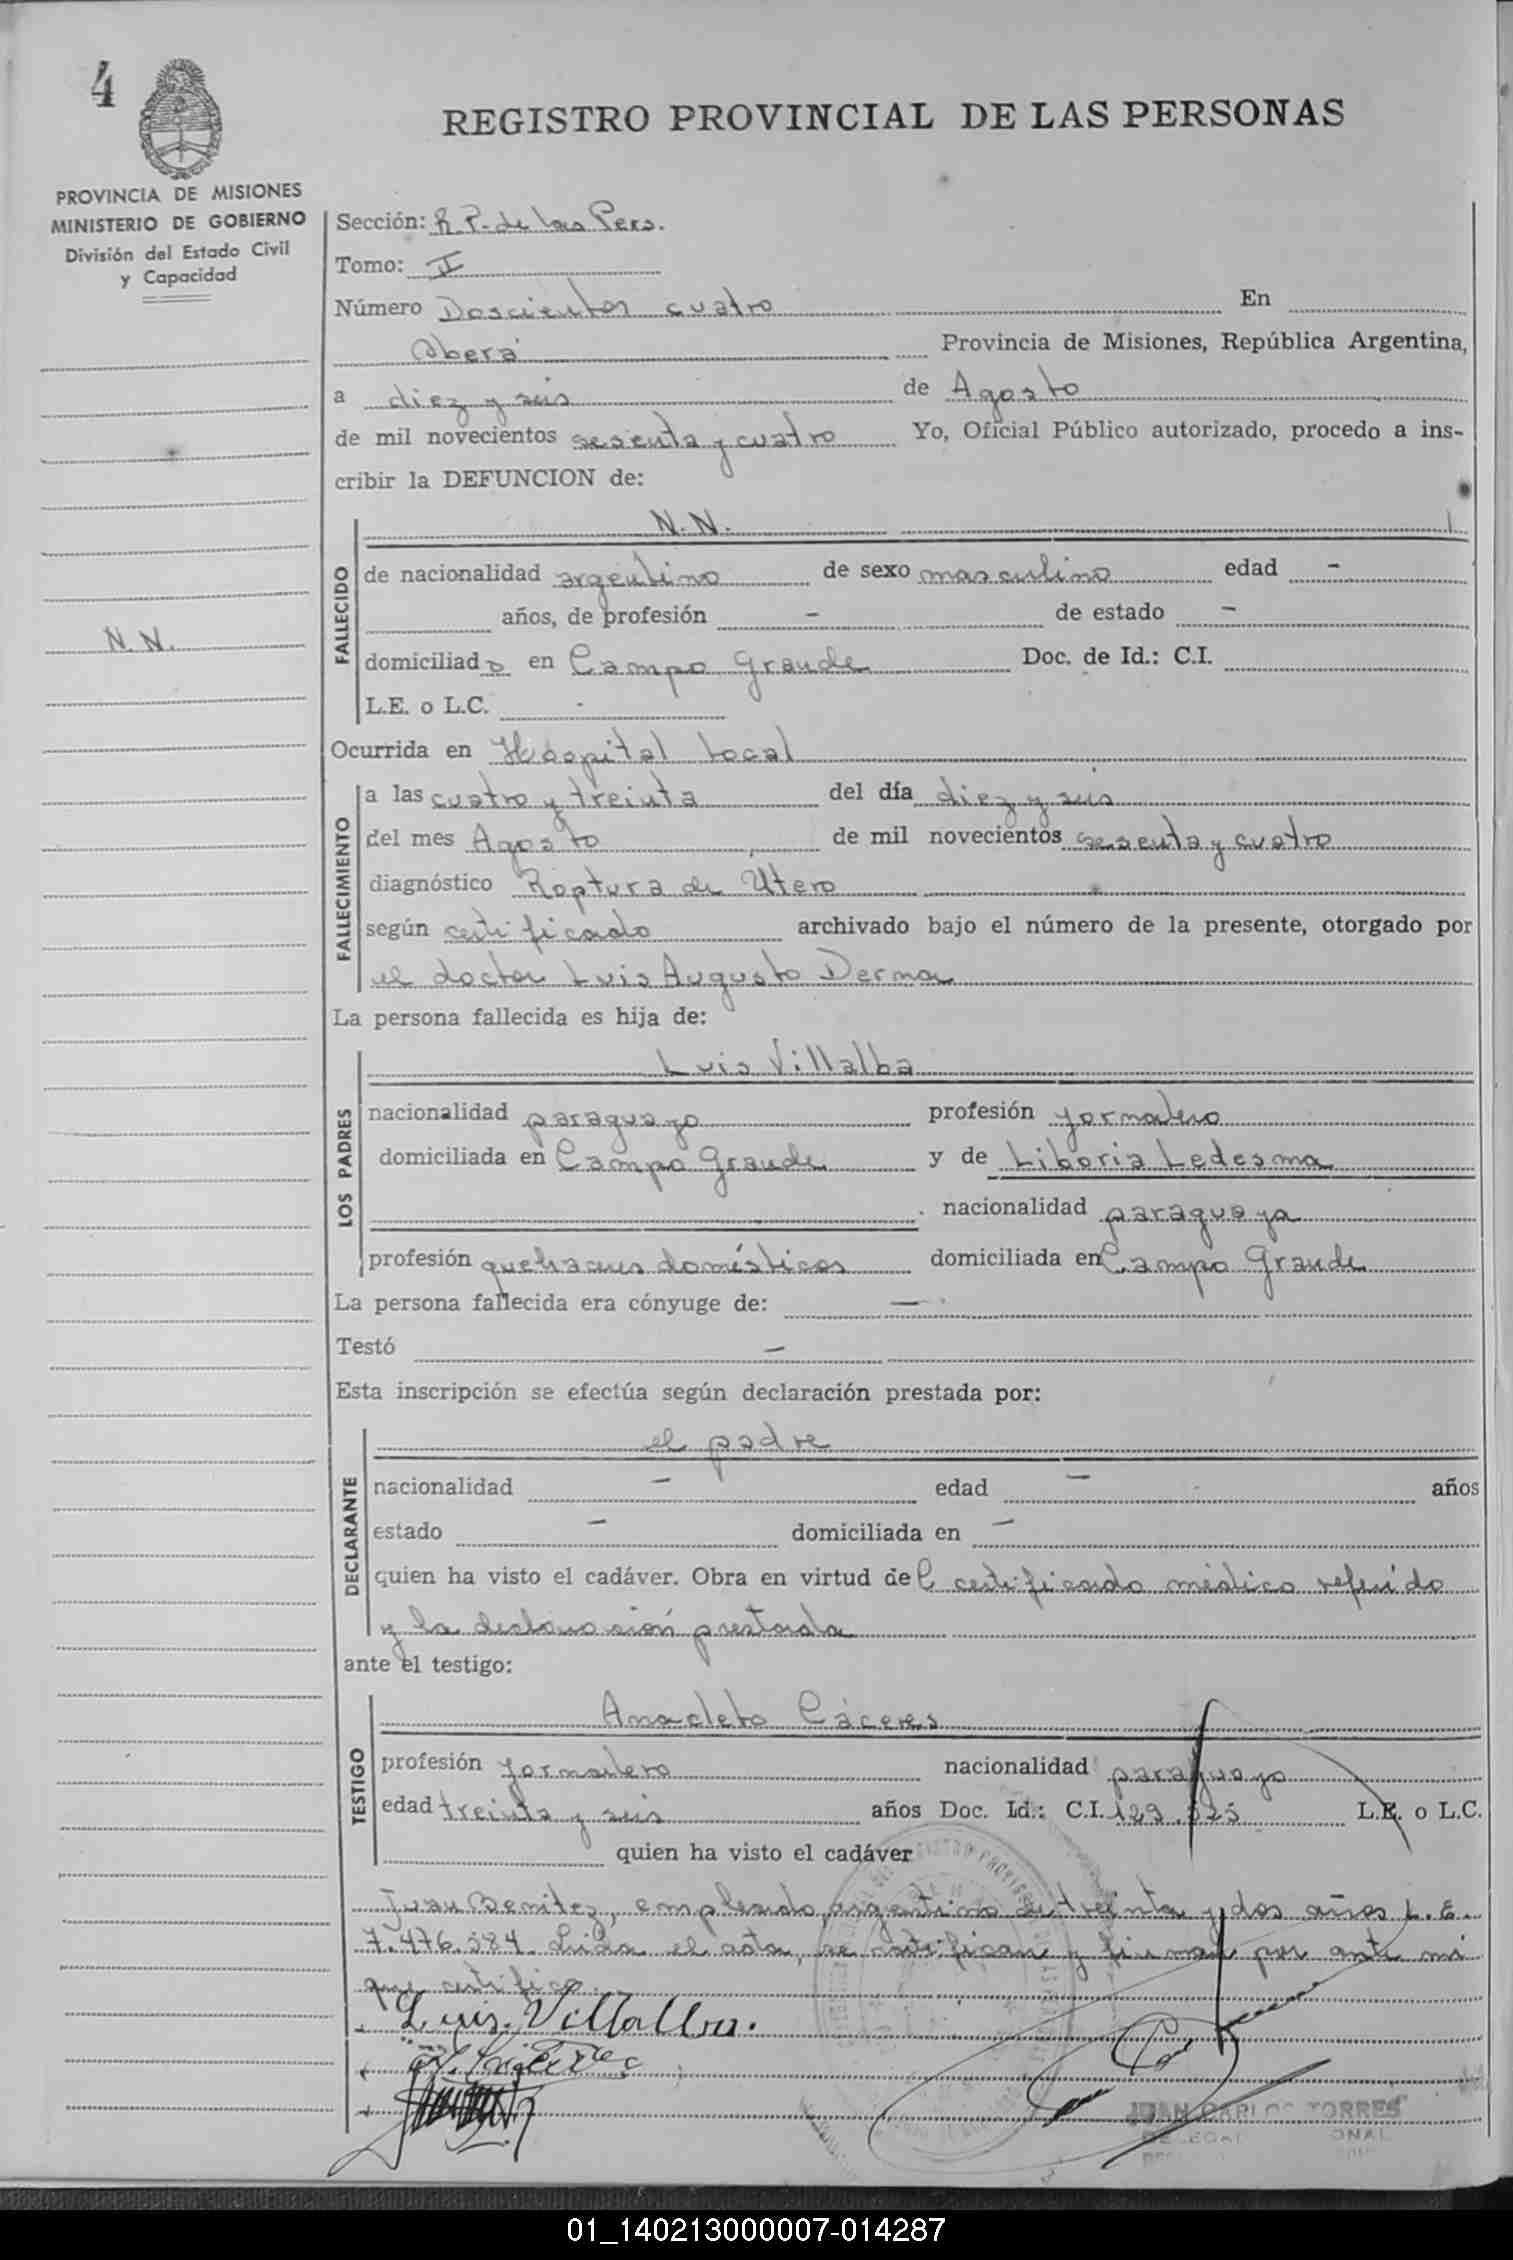 4
REGISTRO PROVINCIAL DE LAS PERSONAS
PROVINCIA DE MISIONES
MINISTERIO DE GOBIERNO
División del Estado Civil
y Capacidad
N.N.
Sección: R.P. de las Pers.
Tomo: I
Número Doscientos cuatro En
Oberá Provincia de Misiones, República Argentina,
a diez y seis de Agosto
de mil novecientos sesenta y cuatro Yo, Oficial Público autorizado, procedo a ins-
cribir la DEFUNCION de:
N.N.
FALLECIDO
de nacionalidad argentino de sexo masculino edad -
años, de profesión - de estado -
domiciliado en Campo Grande Doc. de Id.: C.I.
L.E. o L.C. -
Ocurrida en Hospital local
FALLECIMIENTO
a las cuatro y treinta del día diez y seis
del mes Agosto de mil novecientos sesenta y cuatro
diagnóstico Roptura de Utero
según certificado archivado bajo el número de la presente, otorgado por
el doctor Luis Augusto Derna
La persona fallecida es hija de:
LOS PADRES
Luis Villalba
nacionalidad paraguayo profesión jornalero
domiciliada en Campo Grande y de Liboria Ledesma
nacionalidad paraguaya
profesión quehaceres domésticos domiciliada en Campo Grande
La persona fallecida era cónyuge de: -
Testó -
Esta inscripción se efectúa según declaración prestada por:
DECLARANTE
el padre
nacionalidad - edad - años
estado - domiciliada en -
quien ha visto el cadáver. Obra en virtud del certificado médico referido
y la declaración prestada
ante el testigo:
TESTIGO
Anacleto Cáceres
profesión jornalero nacionalidad paraguayo
edad treinta y seis años Doc. Id.: C.I. 129.525 L.E. o L.C.
quien ha visto el cadáver
Juan Benitez, empleado, argentino de treinta y dos años L.E.
7.476.584. Leida el acta, se ratifican y firman por ante mi
que certifico.
Luis. Villalba.
JUAN CARLOS TORRES
01_140213000007-014287